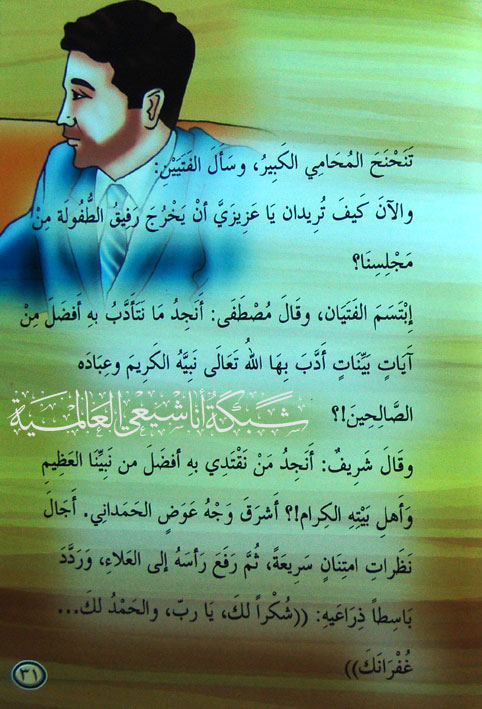 تَنَحْنَحَ المُحَامِي الكَبِيرُ، وسَأَلَ الفَتَيَيْنِ:
والآنَ كَيفَ تُرِيدان يَا عَزِيزَيَّ أنْ يَخْرُجَ رَفِيقُ الطُّفُولَة مِنْ
مَجْلِسِنَا؟
إبْتَسَمَ الفَتَيَان، وقَالَ مُصْطَفَى: أَنَجِدُ مَا نَتَأَدَّبُ بهِ أَفضَلَ مِنْ
آيَاتٍ بَيِّنَاتٍ أَدَّبَ بِهَا اللهُ تَعَالَى نَبِيَّهُ الكَرِيمَ وعِبَادَه
الصَّالِحِينَ!؟
شبكة أنا شيعي العالمية
وقَالَ شَرِيفٌ: أَنَجِدُ مَنْ نَقْتَدِي بهِ أفضَلَ من نَبِيِّنَا العَظِيمِ
وَأَهلِ بَيْتِهِ الكِرام!؟ أَشرَقَ وَجْهُ عَوَضٍ الحَمَداني. أَجَالَ
نَظَراتِ امتِنَانٍ سَرِيعَةً، ثُمَّ رَفَعَ رَأسَهُ إلى العَلاءِ، وَرَدَّدَ
بَاسِطاً ذِرَاعَيهِ: ((شُكْراً لكَ، يَا ربّ، والحَمْدُ لكَ...
غُفْرَانَكَ))
٣١